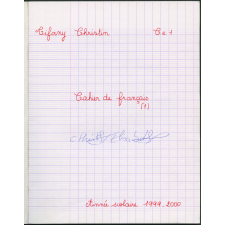 Tifany Christin Ce 1
Cahier de français
(1)
Année scolaire 1999_2000